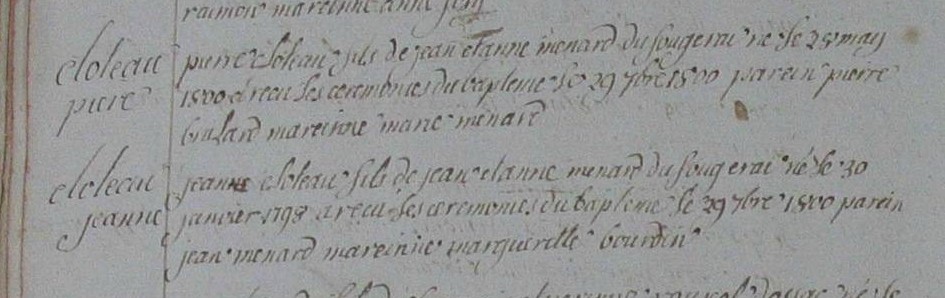 raimon mareinne anne
eloleau
pierre
pierre eloleau fils de jean et anne menard du fougerai né le 28 may
1800 a reçu les ceremonies du bapteme le 29 7bre 1800 parein pierre
mareinne marie menard
eloleau
jeanne
jeanne eloleau fils de jean et anne menard du fougerai né le 30
janvier 1798 a reçu les ceremonies du bapteme le 29 7bre 1800 parein
jean menard mareinne margueritte bourdin